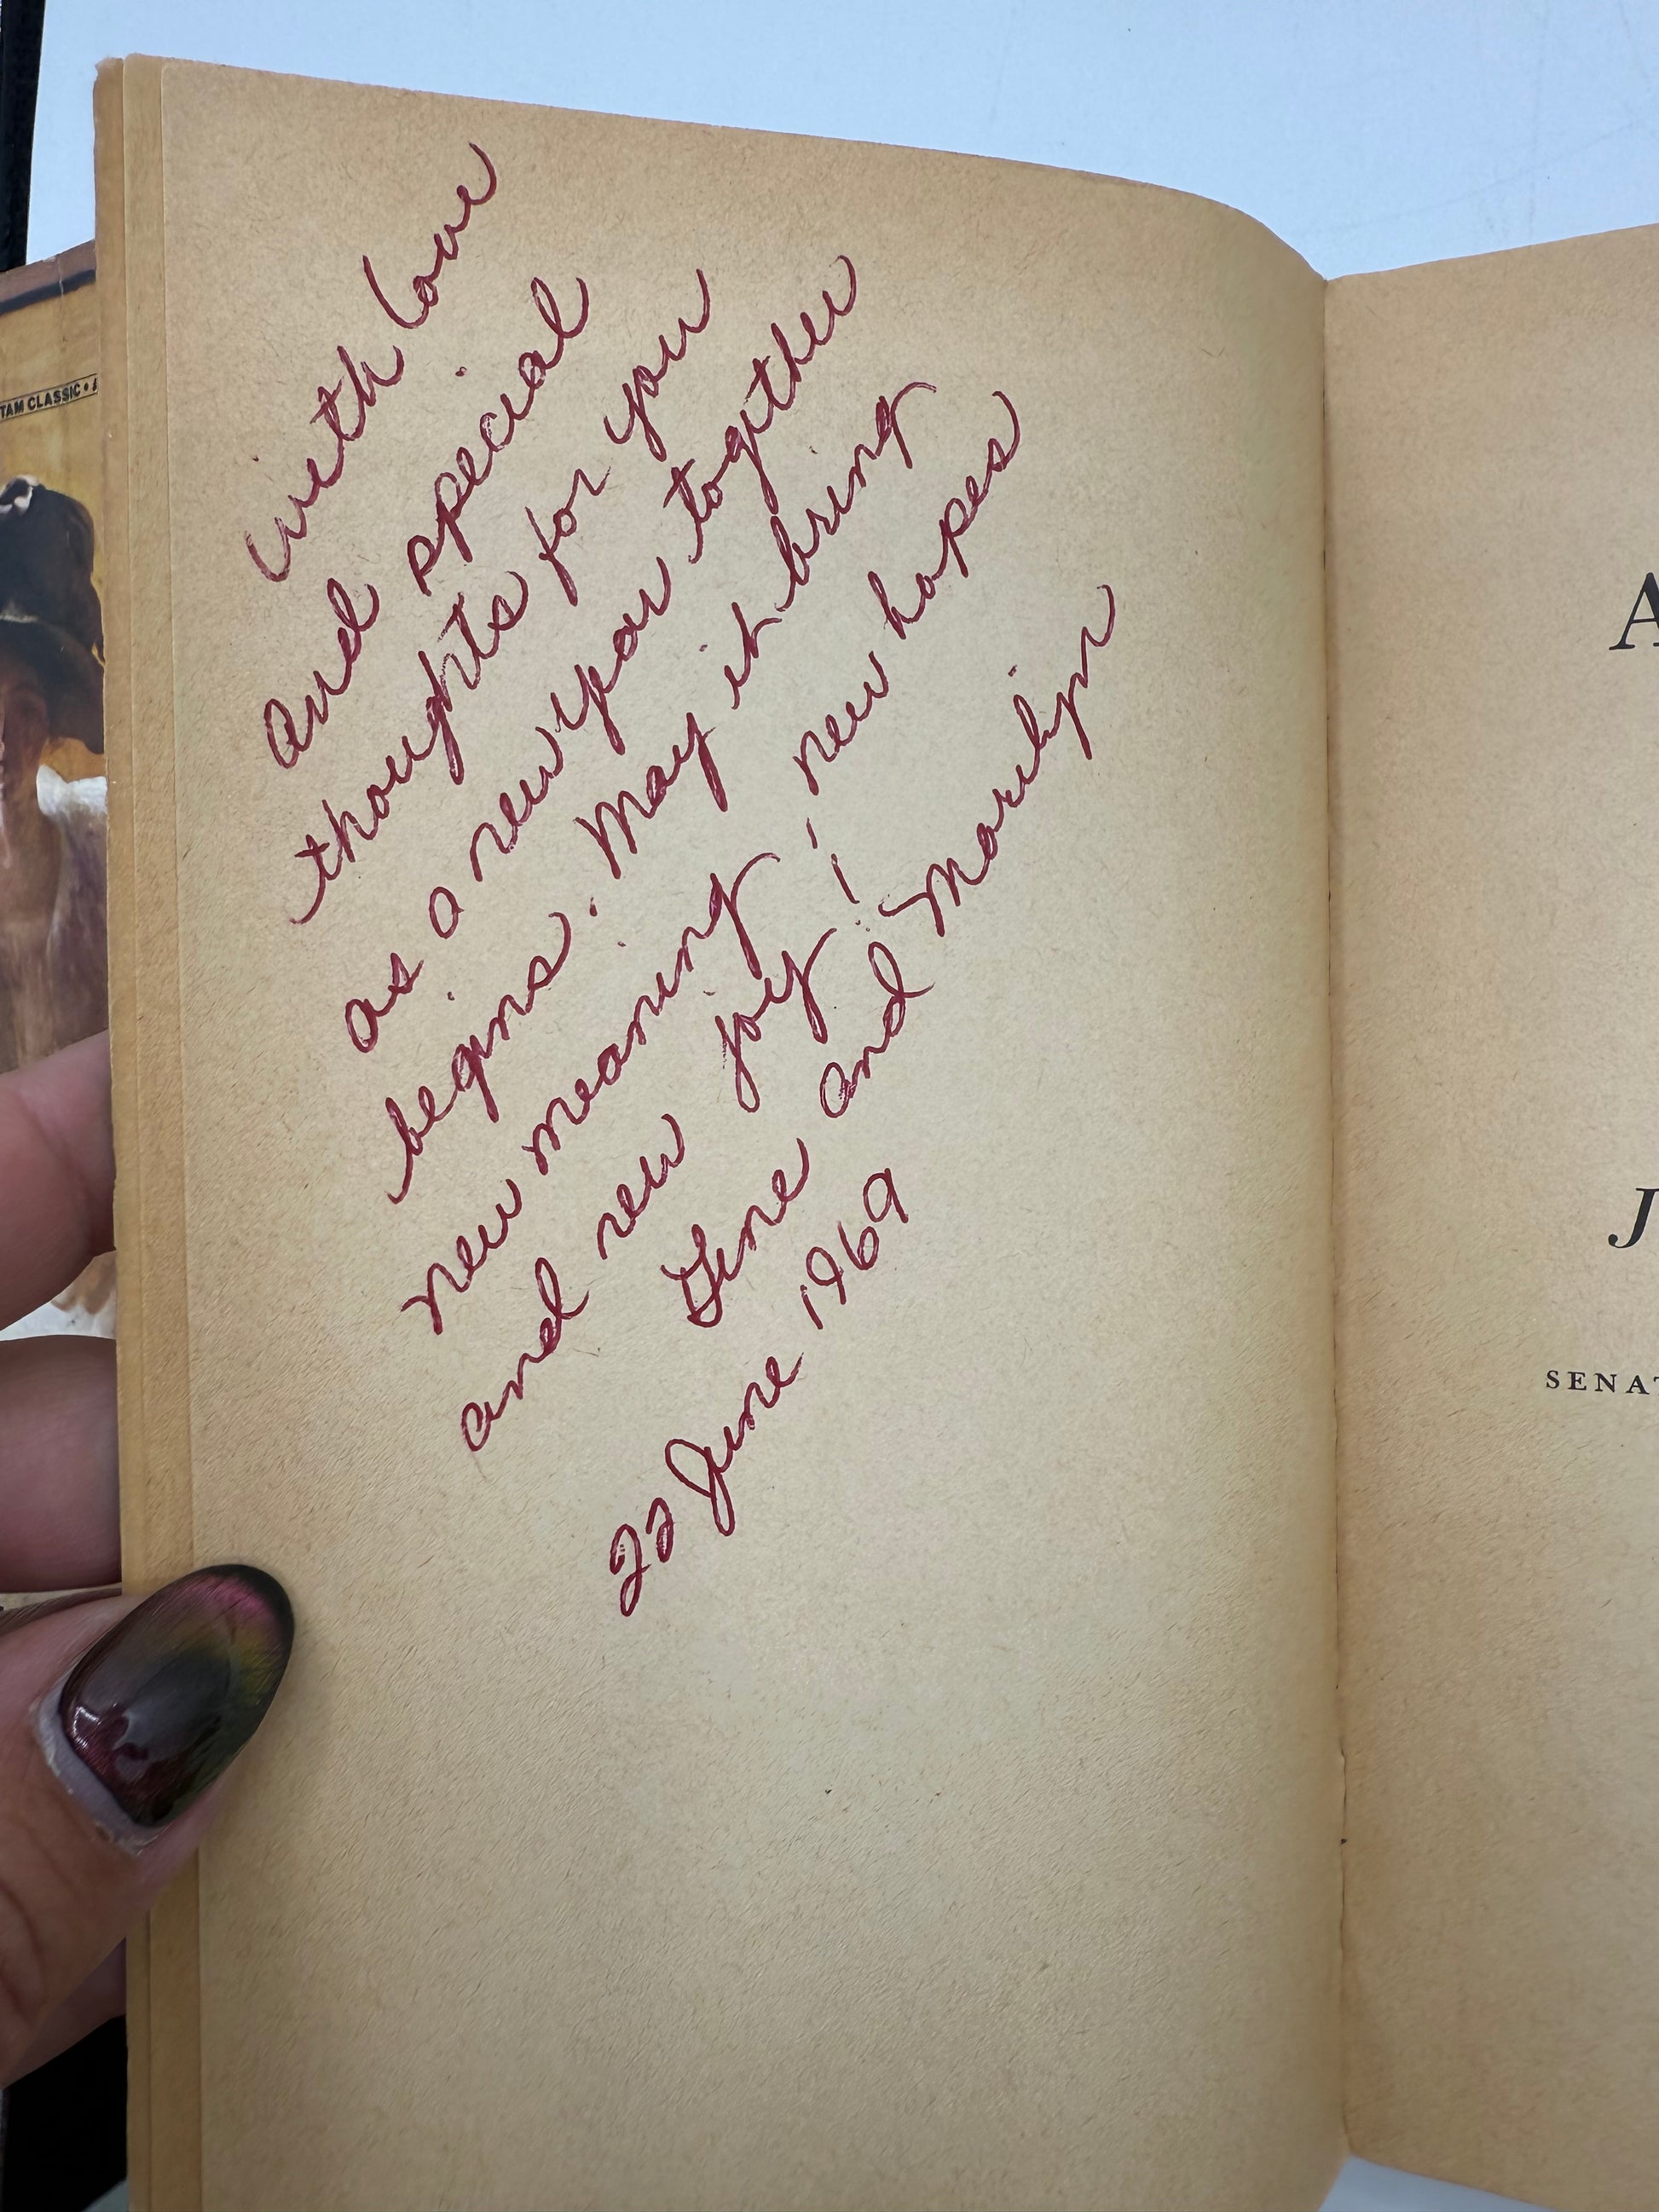 with love
and special
thoughts for you
as a new year together
begins. May it bring
new meaning, new hopes
and new joy!
Gene and Marilyn
22 June 1969
TAM CLASSIC •
A
J
SENAT